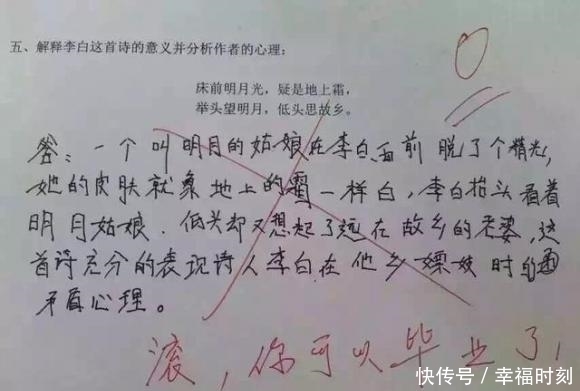 五、解释李白这首诗的意义并分析作者的心理:
床前明月光,疑是地上霜,
举头望明月,低头思故乡。
0
答:一个叫明月的姑娘在李白面前脱了个精光,
她的皮肤就象地上的霜一样白,李白抬头看着
明月姑娘.低头却又想起了远在故乡的老婆,这
首诗充分的表现诗人李白在他乡嫖妓时的
矛盾心理。
滚,你可以毕业了,
快传号/幸福时刻